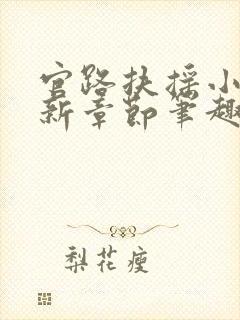 官路扶摇小
新章节笔趣
梨花瘦